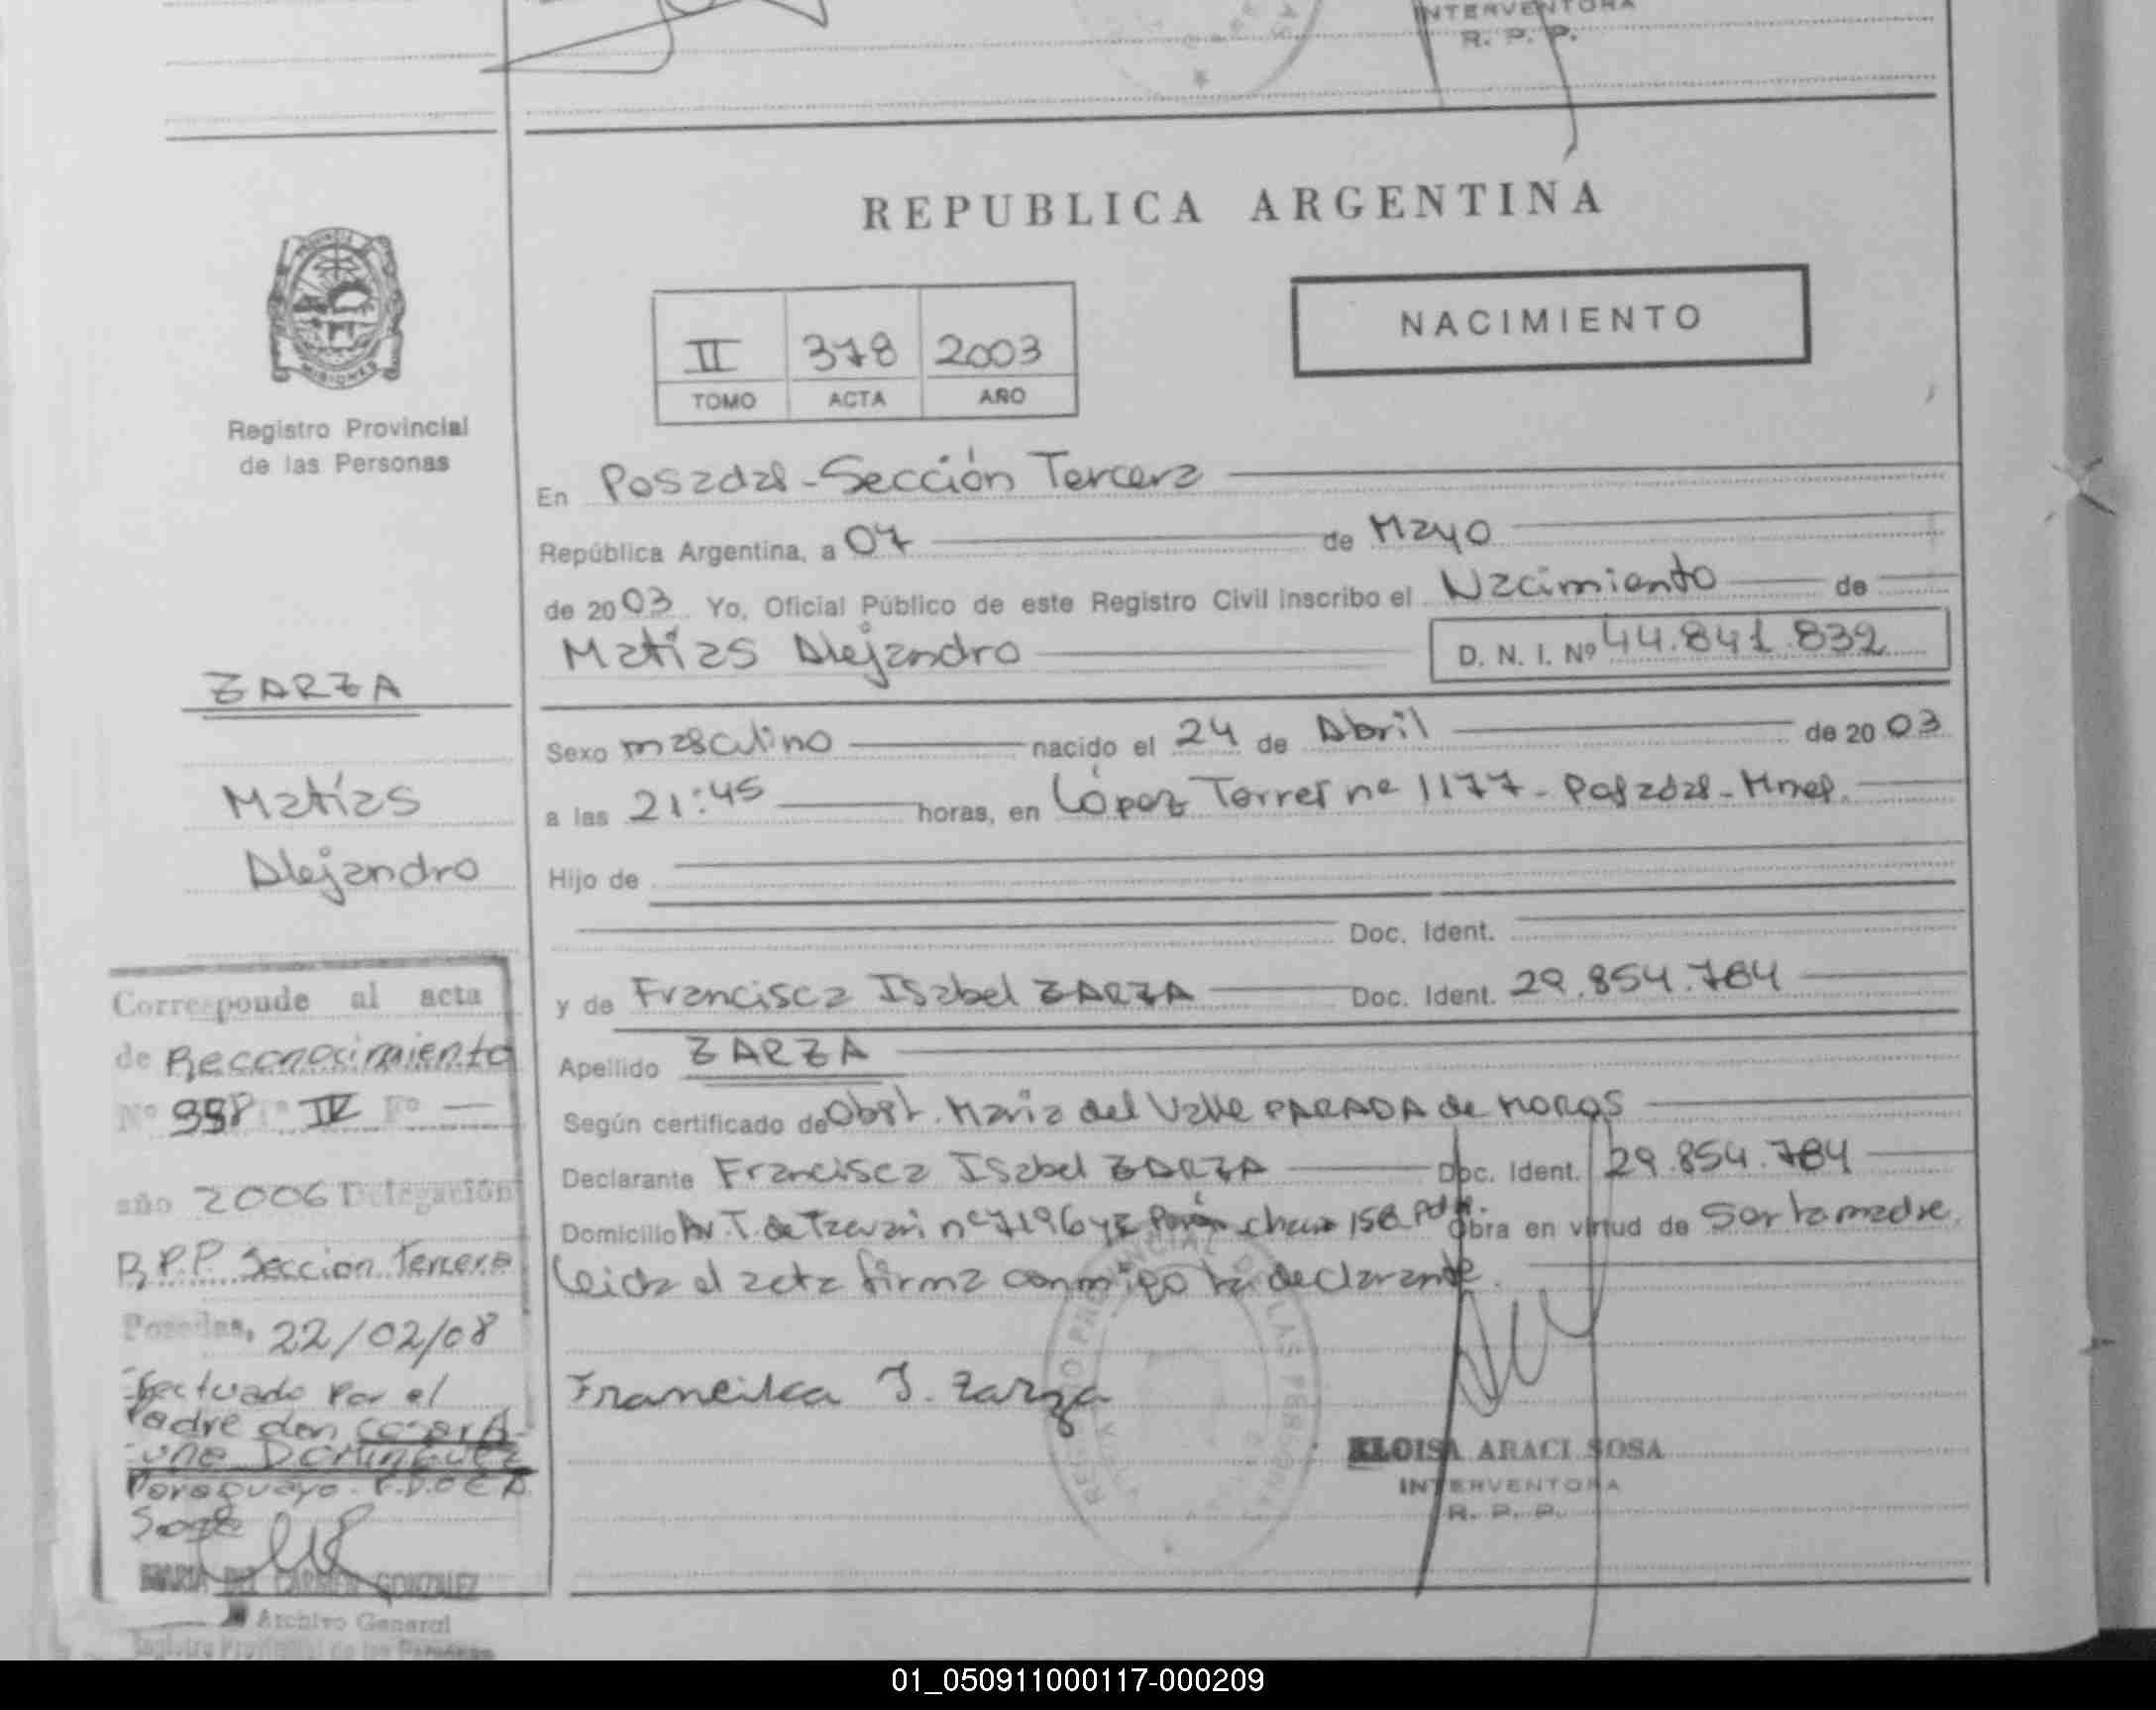 INTERVENTORA
R. P. P.
REPUBLICA ARGENTINA
MISIONES
II 378 2003
TOMO ACTA AÑO
NACIMIENTO
Registro Provincial
de las Personas
En Posadas - Sección Tercera
República Argentina, a 07 de Mayo
de 2003 Yo, Oficial Público de este Registro Civil inscribo el Nacimiento de
Matías Alejandro D. N. I. Nº 44.841.832
ZARZA
Matías
Alejandro
Sexo masculino nacido el 24 de Abril de 2003
a las 21:45 horas, en López Torres nº 1177 - Posadas - Mnes.
Hijo de
Doc. Ident.
y de Francisca Isabel ZARZA Doc. Ident. 29.854.784
Apellido ZARZA
Según certificado de Obst. María del Valle PARADA de MORAS
Declarante Francisca Isabel ZARZA Doc. Ident. 29.854.784
Domicilio Av. T. de Tacuari nº 7196 158 Pdas. Obra en virtud de Ser la madre.
Leida el acta firma conmigo la declarante.
Francisca I. Zarza
ELOISA ARACI SOSA
INTERVENTORA
R. P. P.
Corresponde al acta
de Reconocimiento
Nº 998 Tº IV Fº —
año 2006 Delegación
R.P.P. Seccion Tercera
Posadas, 22/02/08
fectuado Por el
Padre don
DOMINGUEZ
Paraguayo
MARIA DEL CARMEN GONZALEZ
Archivo General
Registro Provincial de las Personas
01_050911000117-000209